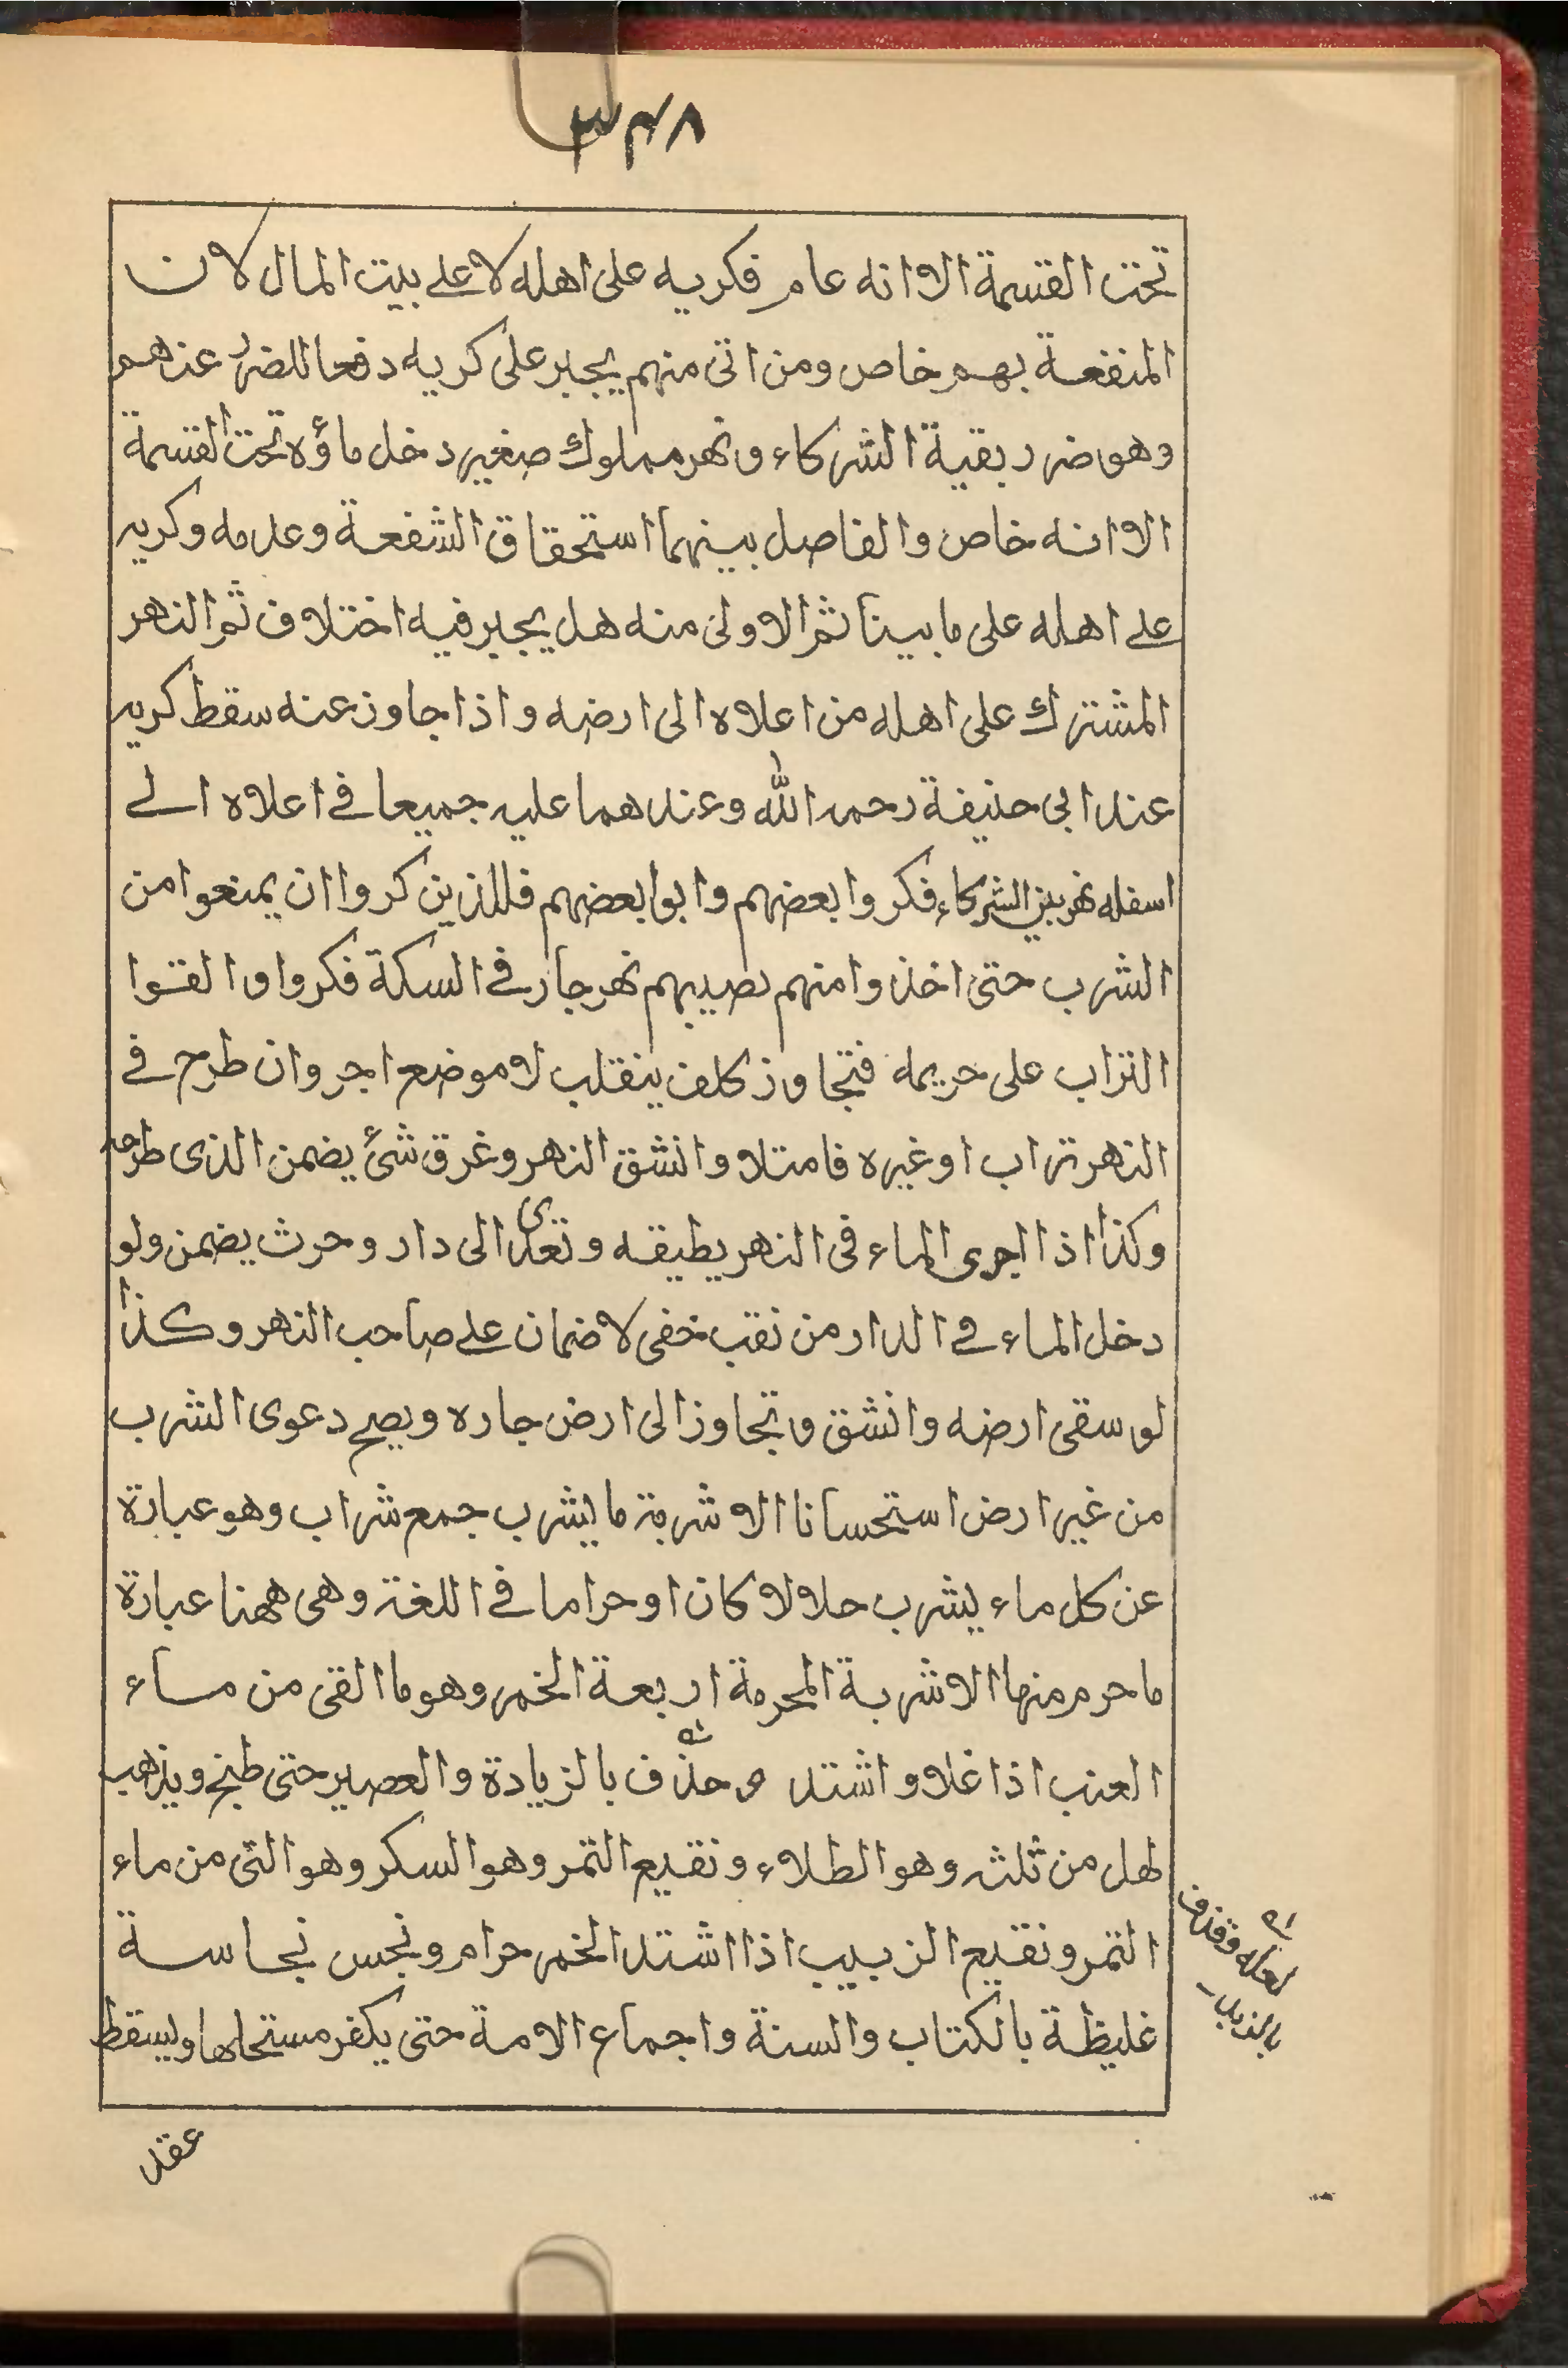 ٣٤٨
تحت القسمة الا انه عام فكريه على اهله لا على بيت المال لان
المنفعة بهم خاص ومن اتى منهم يجبر على كريه دفعا للضرر عنهم
وهو ضرر بقية الشركاء ونهر مملوك صغير دخل ماؤه تحت القسمة
الا انه خاص والفاصل بينهما استحقاق الشفعة وعدمه وكريه
على اهله على ما بينا ثم الاولى منه هل يجبر فيه اختلاف ثم النهر
المشترك على اهله من اعلاه الى ارضه واذا جاوز عنه سقط كريه
عند ابى حنيفة رحمه الله وعندهما عليه جميعا في اعلاه الى
اسفله نهر بين الشركاء فكروا بعضهم وابوا بعضهم فللذين كروا ان يمنعوا من
الشرب حتى اخذوا منهم نصيبهم نهر جار في السكة فكروا والقوا
التراب على حريمه فتجاوز كلف ينقلب لا موضع اجر وان طرح في
النهر تراب او غيره فامتلا وانشق النهر وغرق شئ يضمن الذى طرحه
وكذا اذا اجرى الماء فى النهر يطيقه وتعدى الى دار وحرث يضمن ولو
دخل الماء في الدار من نقب خفى لا ضمان على صاحب النهر وكذا
لو سقى ارضه وانشق وتجاوز الى ارض جاره ويصح دعوى الشرب
من غير ارض استحسانا الاشربة ما يشرب جمع شراب وهو عبارة
عن كل ماء يشرب حلالا كان او حراما في اللغة وهى ههنا عبارة
ما حرم منها الاشربة المحرمة اربعة الخمر وهو ما القى من ماء
العنب اذا غلا واشتد وحذف بالزيادة والعصير حتى طبخ ويذهب
لهل من ثلثه وهو الطلاء ونقيع التمر وهو السكر وهو التى من ماء
التمر ونقيع الزبيب اذا اشتد الخمر حرام ونجس نجاسة
غليظة بالكتاب والسنة واجماع الامة حتى يكفر مستحلها ويسقط
لعله وقذف
بالزبد
عقد